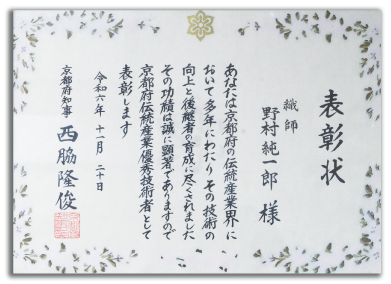 表彰状
織師
野村純一郎 様
あなたは京都府の伝統産業界に
おいて多年にわたりその技術の
向上と後継者の育成に尽くされました
その功績は誠に顕著でありますので
京都府伝統産業優秀技術者として
表彰します
令和六年 十一月 二十日
京都府知事 西脇隆俊